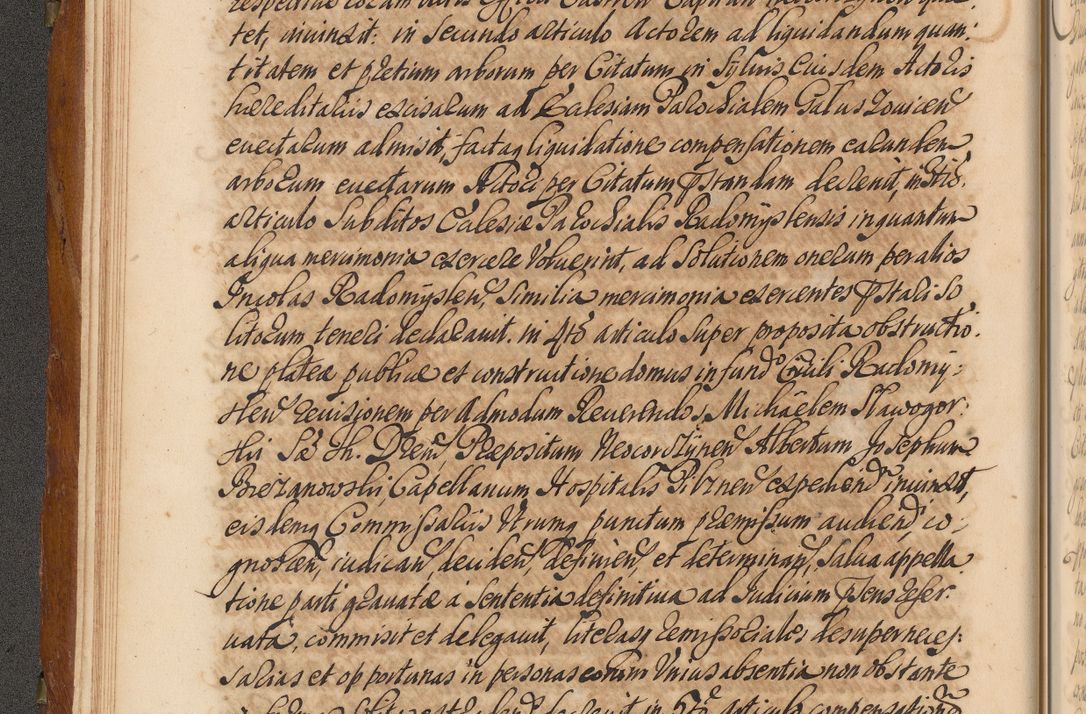 tet, iniunxit: in Secundo articulo Actorem ad liquidandum quan:
titatem et pretium arborum per Citatum in Sylvis Eiusdem Actoris
hæreditariis excisarum ad Ecclesiam Parochialem Galuszovicen
evectarum admisit, factaq liquidatione compensationem earundem
arborum evectarum Actori per Citatum pstandam decrevit, in 3tio
articulo Subditos Ecclesiæ Parochialis Radomyslensis inquantum
aliqua mercimonia exercere Voluerint, ad Solutionem onerum per alios
Incolas Radomyslen, Similia mercimonia exercentes pstari So
litorum teneri declaravit. in 4to articulo Super proposita obstructio:
ne plateæ publicæ et constructione domus in fundo Civili Radomy:
slen revisionem per Admodum Reverendos Michaëlem Slawogor:
ski Sæ Th. Drem Præpositum Albertum Josephum
Brezanowski Capellanum Hospitalis Pilznen expediend iniunxit,
eisdemq Commissariis Utrumq punctum præmissum audiend, co:
gnoscen, iudican, deciden, definien, et determinan, Salva appella
tione parti gravatæ à Sententia definitiva ad Iudicium psens reser:
vata, commisit et delegavit, literasq remissoriales desuper neces:
sarias et opportunas in personas eorum Unius absentia non obstante